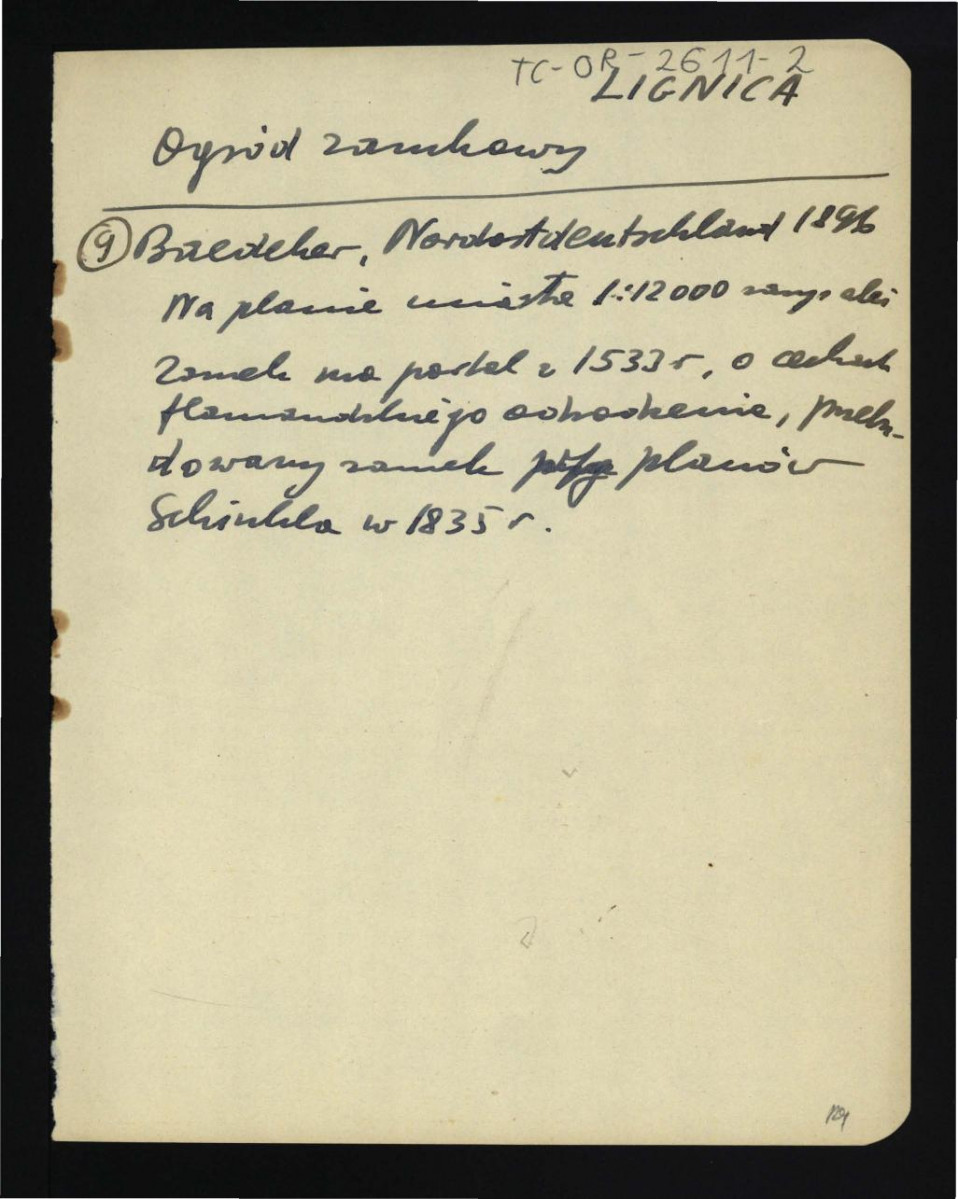 TC-OR-2611-2
LIGNICA
Ogród zamkowy
9 Baedeker, Nordostdeutschland 1896
Na planie miasta 1:12000 zarys alei
Zamek ma portal z 1533 r, o cechach
flamandzkiego odrodzenia, przebu-
dowany zamek planów
Schinkla w 1835 r.